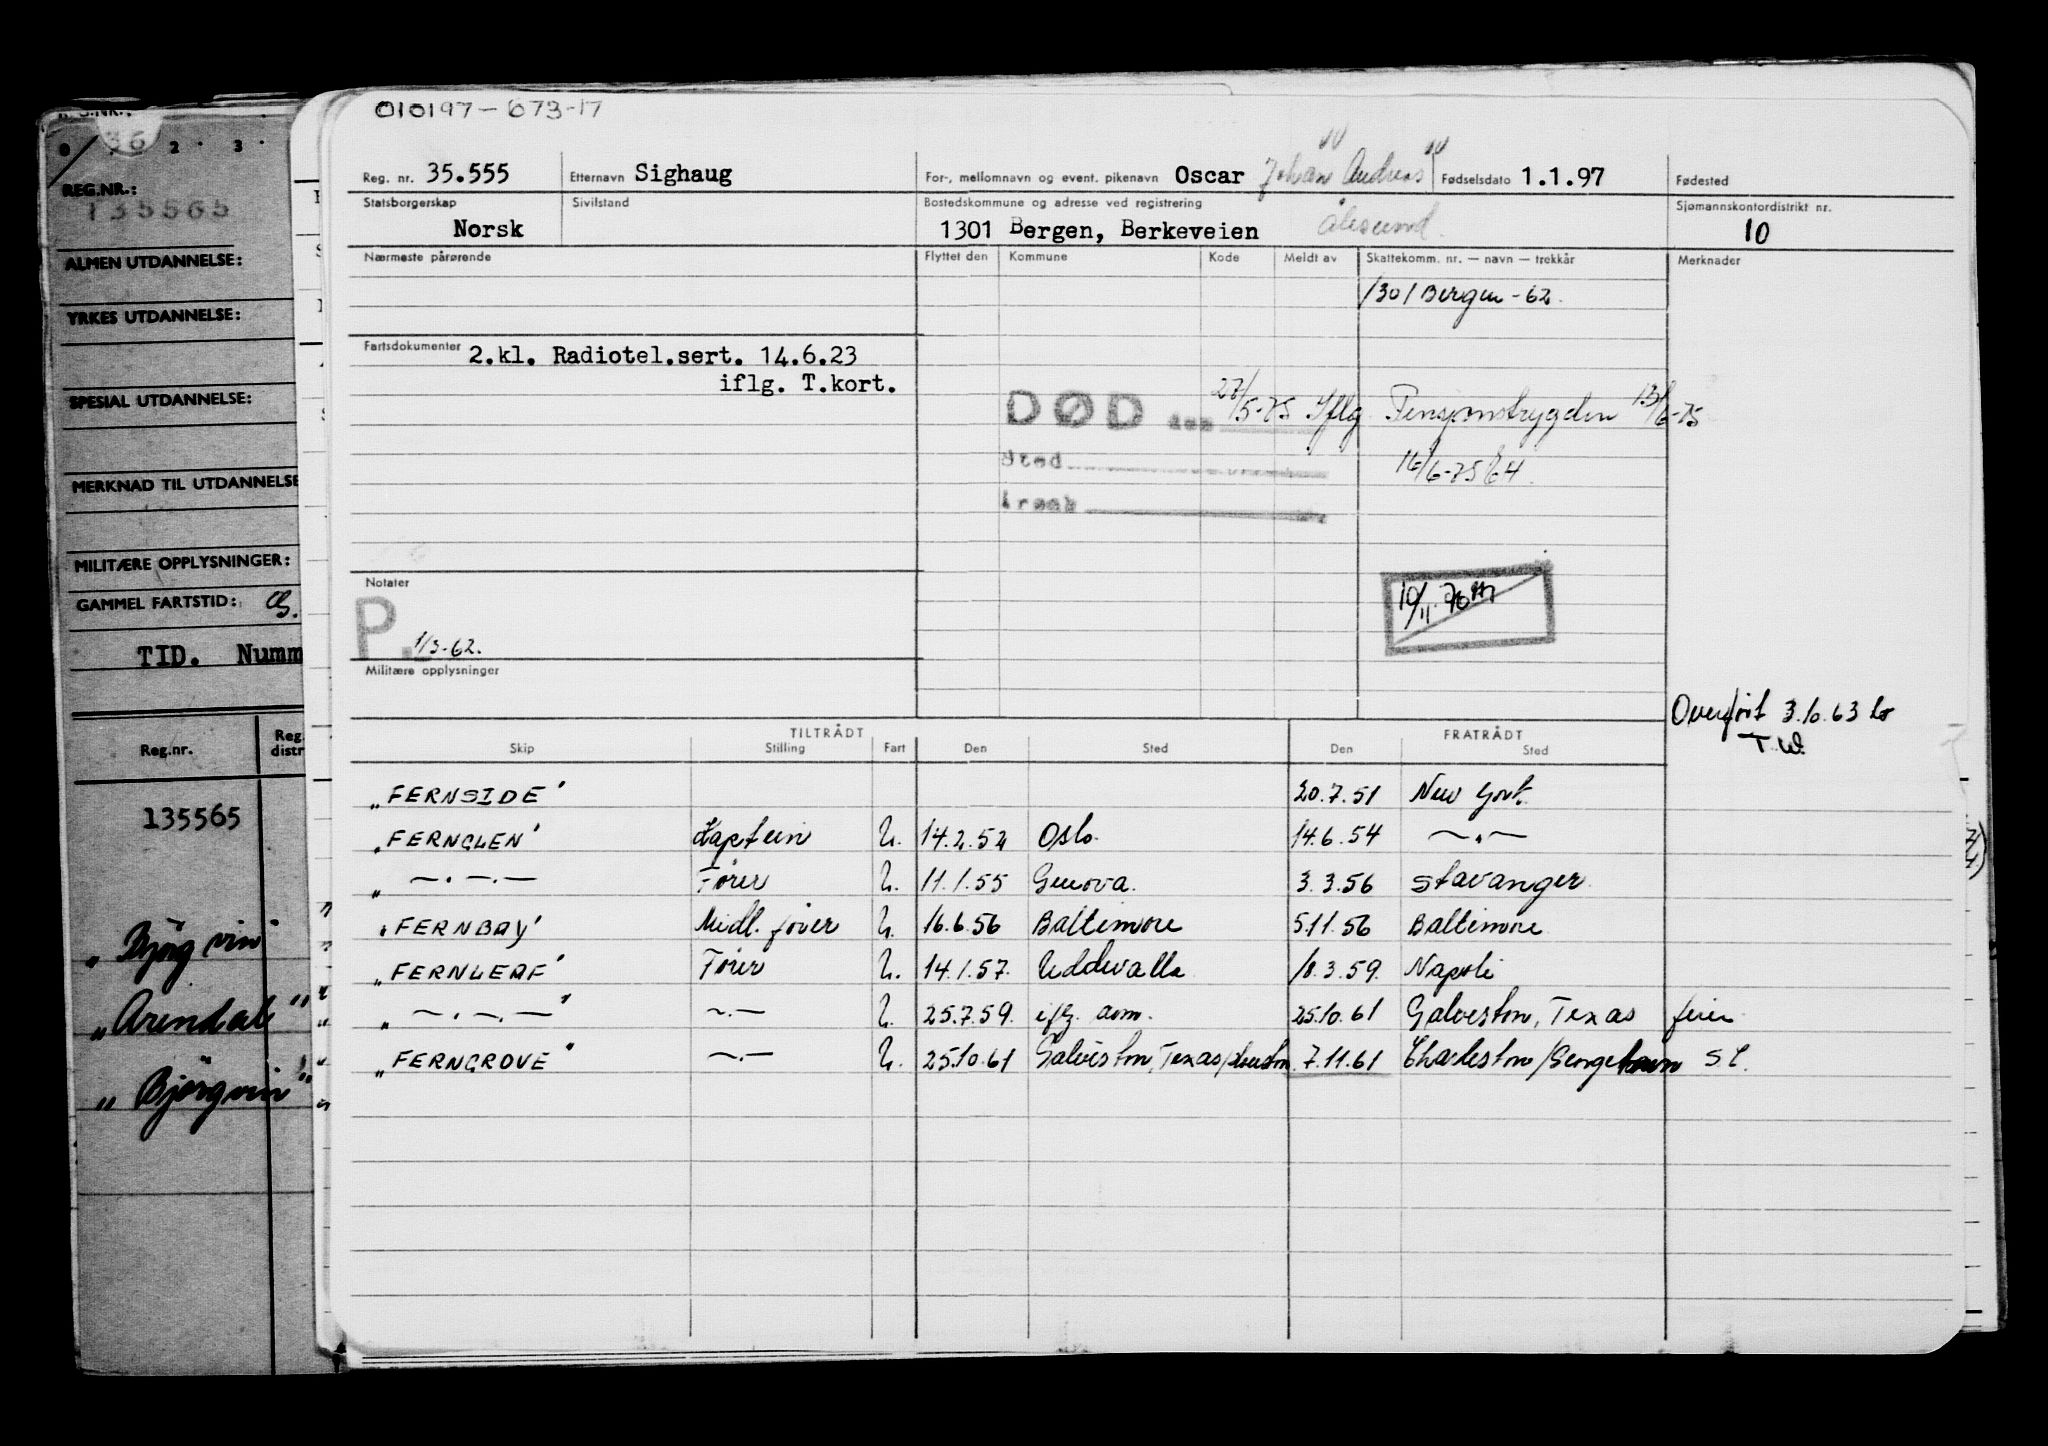 010197-673-17
Reg. nr. 35.555 Etternavn Sighaug For-, mellomnavn og event. pikenavn Oscar Johan Andreas Fødselsdato 1.1.97 Fødested
Statsborgerskap Sivilstand Bostedskommune og adresse ved registrering Sjømannskontordistrikt nr.
Norsk 1301 Bergen, Berkeveien Ålesund. 10
Nærmeste pårørende Flyttet den Kommune Kode Meldt av Skattekomm. nr. — navn — trekkår Merknader
1301 Bergen -62.
Fartsdokumenter 2.kl. Radiotel.sert. 14.6.23
iflg. T.kort.
DØD den 27/5-75 Iflg Pensjonstrygden 13/6-75
Sted 16/6-75
Årsak
Notater
10/11.70
P. 1/3-62.
Militære opplysninger
Overført 3.10.63
TILTRÅDT FRATRÅDT
Skip Stilling Fart Den Sted Den Sted
"FERNSIDE" 20.7.51 New York.
"FERNGLEN" Kaptein U. 14.2.52 Oslo. 14.6.54 —.—
" —.—.— Fører U. 11.1.55 Genova. 3.3.56 Stavanger
"FERNBAY" Midl. fører U. 16.6.56 Baltimore 5.11.56 Baltimore
"FERNLEAF" Fører U. 14.1.57. Uddevalla 18.3.59. Napoli
" —.—.— " —.— U. 25.7.59. iflg. anm. 25.10.61 Galveston, Texas ferie
"FERNGROVE" —.— U. 25.10.61 Galveston, Texas/Houston 7.11.61 Charleston/Georgetown S.C.
36
2 . 3 .
REG.NR.:
135565
ALMEN UTDANNELSE:
YRKES UTDANNELSE:
SPESIAL UTDANNELSE:
MERKNAD TIL UTDANNELSE
MILITÆRE OPPLYSNINGER:
GAMMEL FARTSTID:
TID. Numm
Reg.nr. Reg. distr
135565
"Bjørgvin"
"Arendal"
"Bjørgvin"